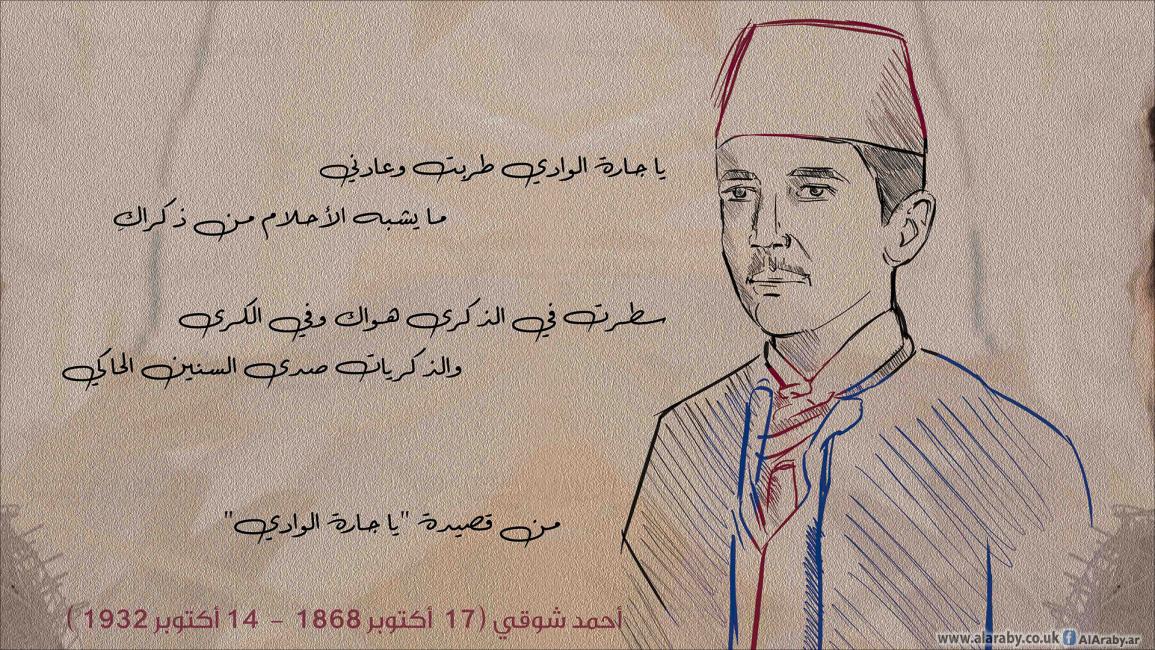 يا جارة الوادي طربت وعادني
ما يشبه الأحلام من ذكراكِ
سطرت في الذكرى هواك وفي الكرى
والذكريات صدى السنين الحاكي
من قصيدة "يا جارة الوادي"
أحمد شوقي (17 أكتوبر 1868 - 14 أكتوبر 1932 )
www.alaraby.co.uk f AlAraby.ar